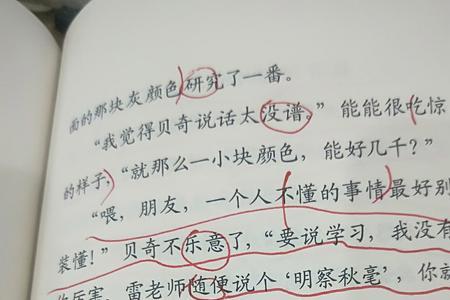 面的那块灰颜色研究了一番。
“我觉得贝奇说话太没谱。”能能很吃惊
的样子,“就那么一小块颜色，能好几千？”
“喂，朋友，一个人不懂的事情最好别
装懂！”贝奇不乐意了，“要说学习，我没有
厉害，雷老师随便说个‘明察秋毫’，你就